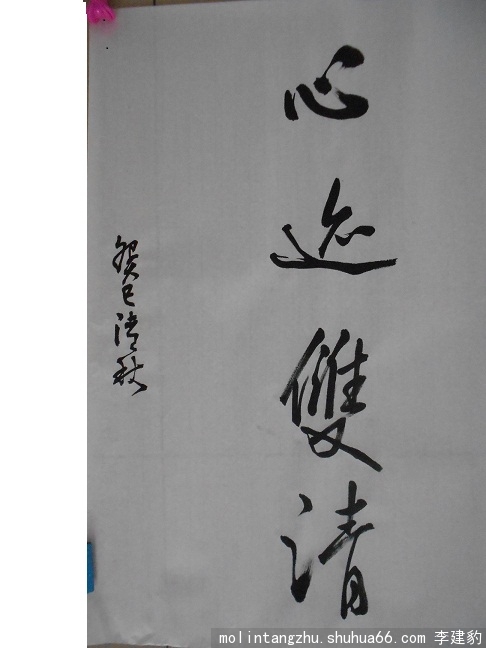 心迹雙清
癸巳清秋
molintangzhu.shuhua66.com 李建豹